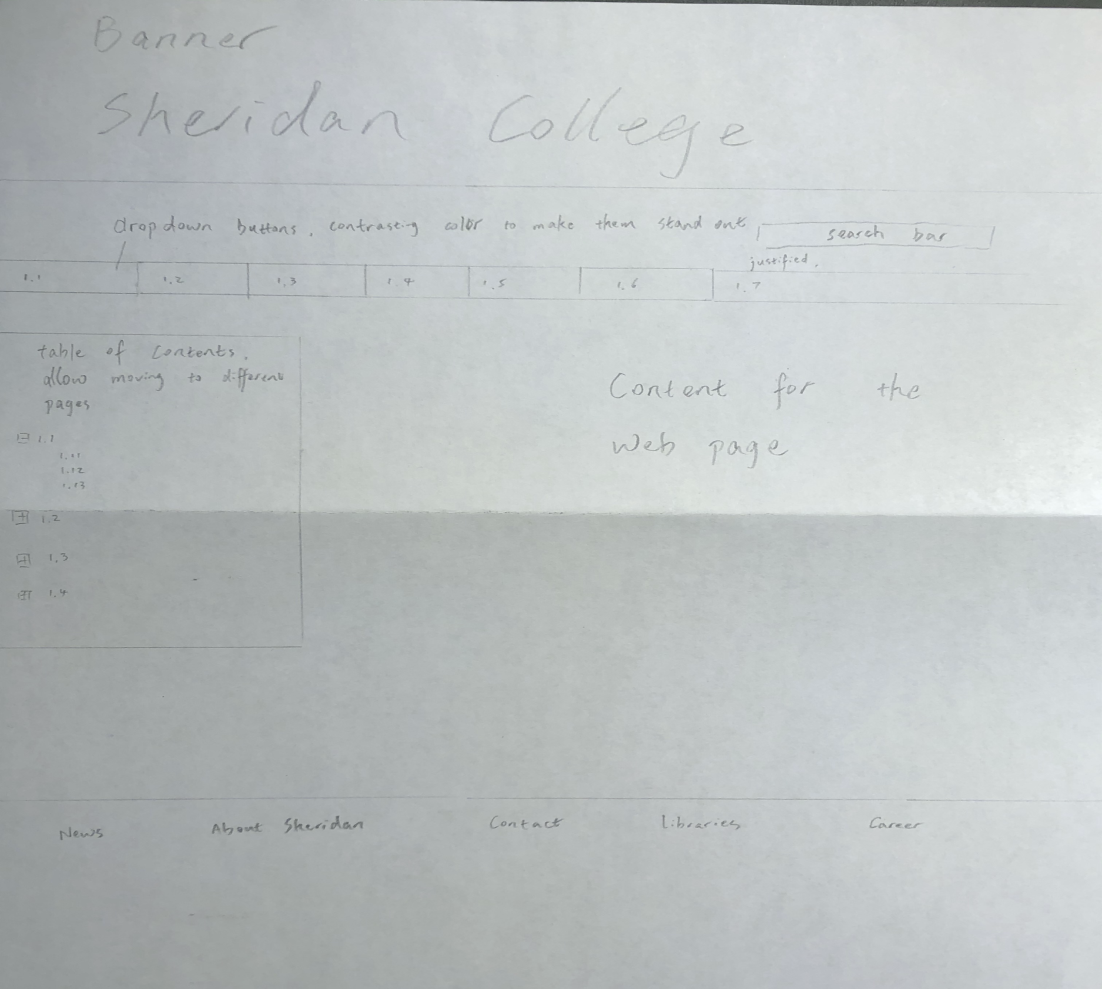 Banner
Sheridan College
drop down buttons, contrasting color to make them stand out
search bar
justified.
1.1 1.2 1.3 1.4 1.5 1.6 1.7
table of contents.
allow moving to different
pages
1.1
1.11
1.12
1.13
1.2
1.3
1.4
Content for the
web page
News About Sheridan Contact Libraries Career